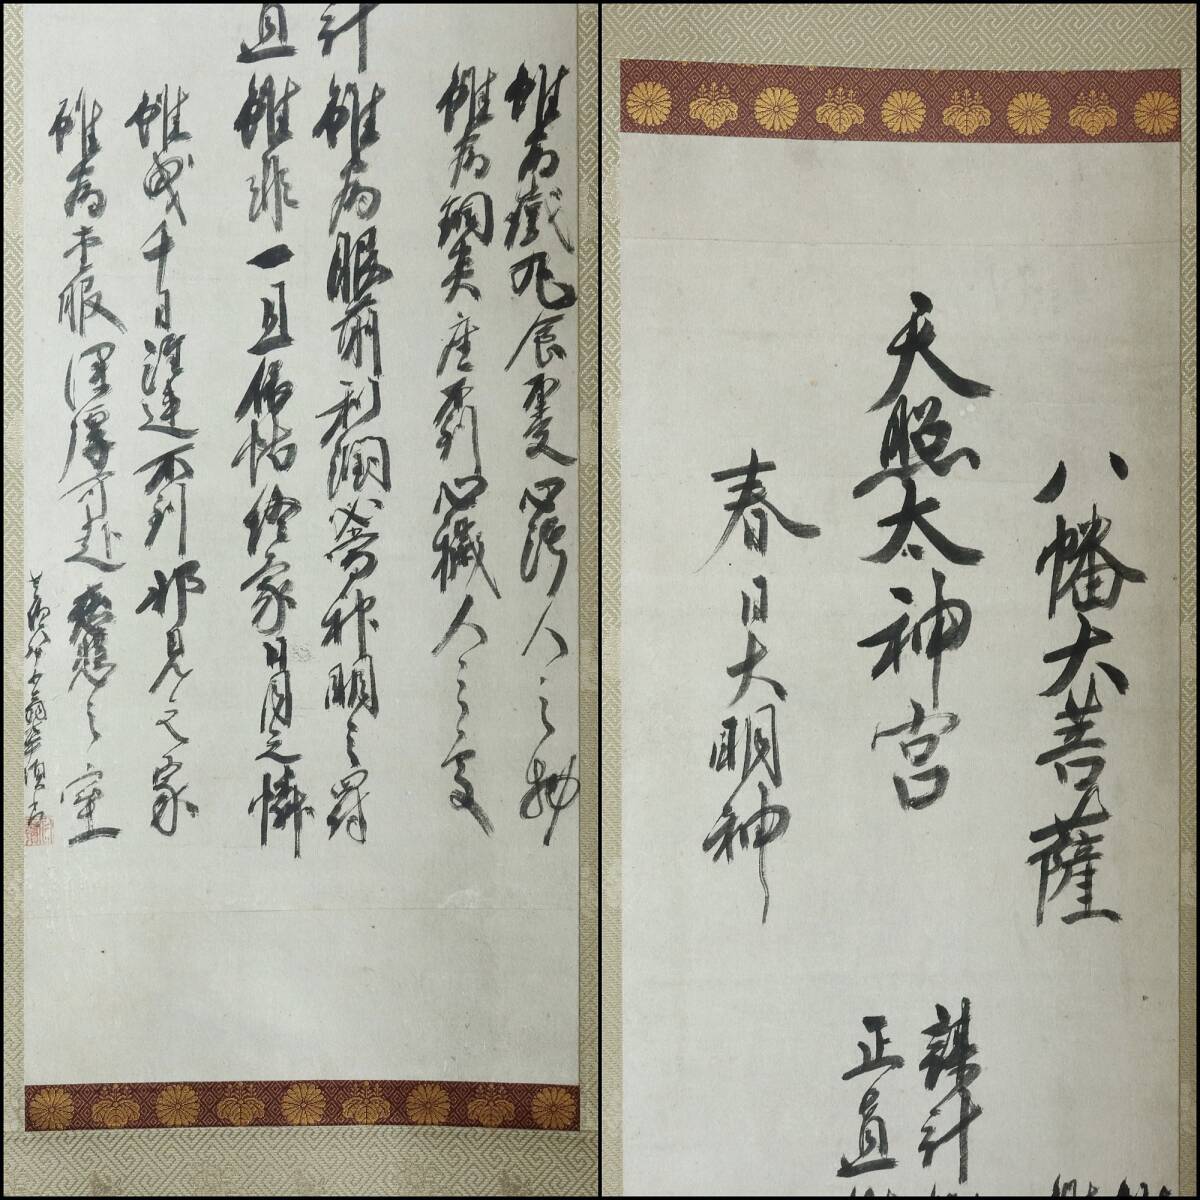 八幡大菩薩
天照太神宮
春日大明神
謀計
正直
雖為鐵丸食不受心汚人之物
雖為銅炎座不到心穢人之處
計雖為眼前利潤必當神明之罰
直雖非一旦依怙終蒙日月之憐
雖曳千日注連不到邪見之家
雖為重服深厚可赴慈悲之室